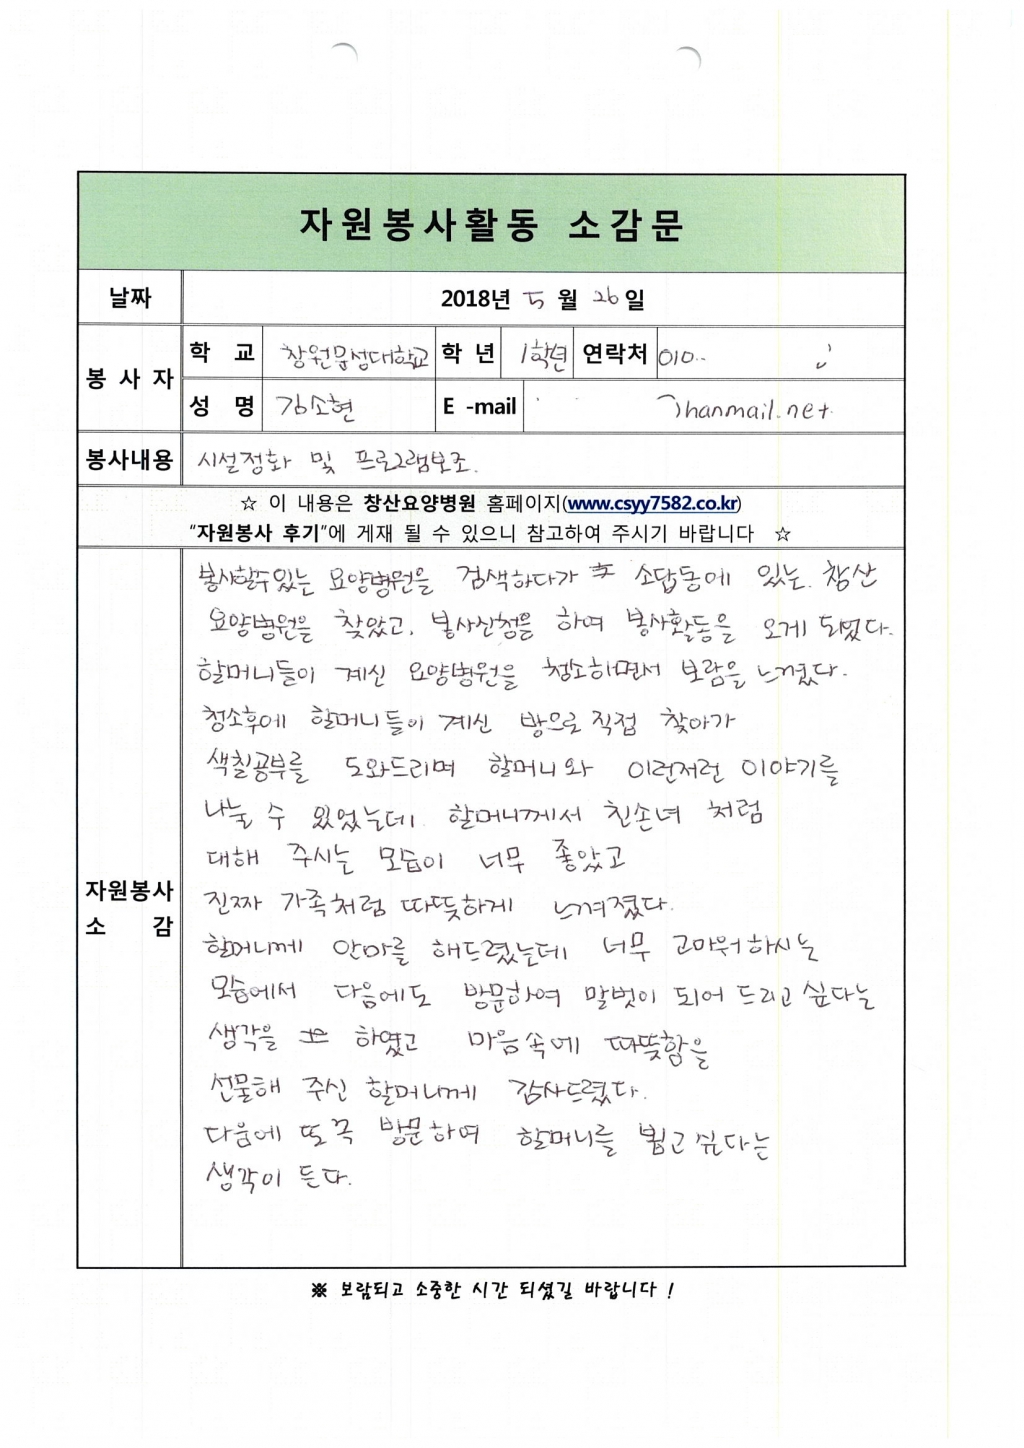 자원봉사활동 소감문
날짜 2018년 5월 26일
봉사자 학교 창원문성대학교 학년 1학년 연락처 010
성명 김소현 E-mail hanmail.net
봉사내용 시설정화 및 프로그램보조.
☆ 이 내용은 창산요양병원 홈페이지(www.csyy7582.co.kr)
"자원봉사 후기"에 게재 될 수 있으니 참고하여 주시기 바랍니다 ☆
자원봉사 소감
봉사할수있는 요양병원을 검색하다가 소답동에 있는 창산
요양병원을 찾았고, 봉사신청을 하여 봉사활동을 오게 되었다.
할머니들이 계신 요양병원을 청소하면서 보람을 느꼈다.
청소후에 할머니들이 계신 방으로 직접 찾아가
색칠공부를 도와드리며 할머니와 이런저런 이야기를
나눌 수 있었는데 할머니께서 친손녀 처럼
대해 주시는 모습이 너무 좋았고
진짜 가족처럼 따뜻하게 느껴졌다.
할머니께 안마를 해드렸는데 너무 고마워하시는
모습에서 다음에도 방문하여 말벗이 되어 드리고 싶다는
생각을 하였고 마음속에 따뜻함을
선물해 주신 할머니께 감사드렸다.
다음에 또 꼭 방문하여 할머니를 뵙고 싶다는
생각이 든다.
※ 보람되고 소중한 시간 되셨길 바랍니다 !